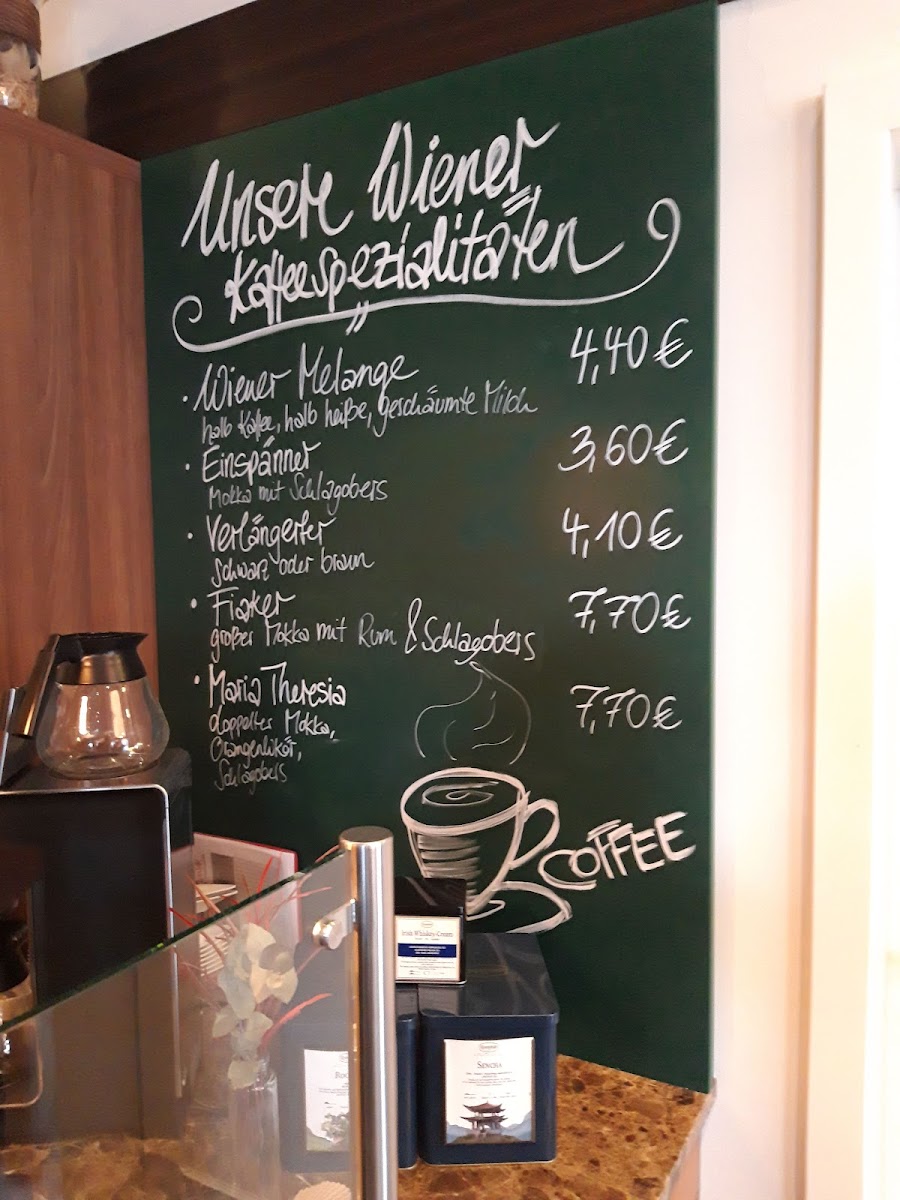 Unsere Wiener
Kaffeespezialitäten
· Wiener Melange 4,40 €
halb Kaffee, halb heiße, geschäumte Milch
· Einspänner 3,60 €
Mokka mit Schlagobers
· Verlängerter 4,10 €
Schwarz oder braun
· Fiaker 7,70 €
großer Mokka mit Rum & Schlagobers
· Maria Theresia 7,70 €
doppelter Mokka,
Orangenlikör,
Schlagobers
COFFEE
Irish Whiskey-Cream
Sencha